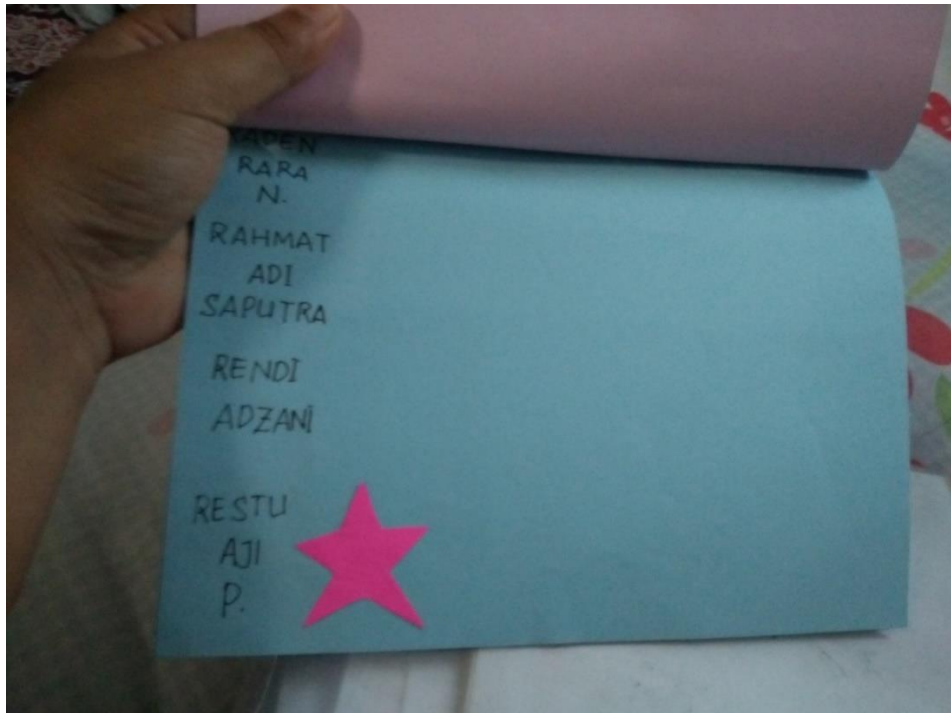 RARA
N.
RAHMAT
ADI
SAPUTRA
RENDI
ADZANI
RESTU
AJI
P.